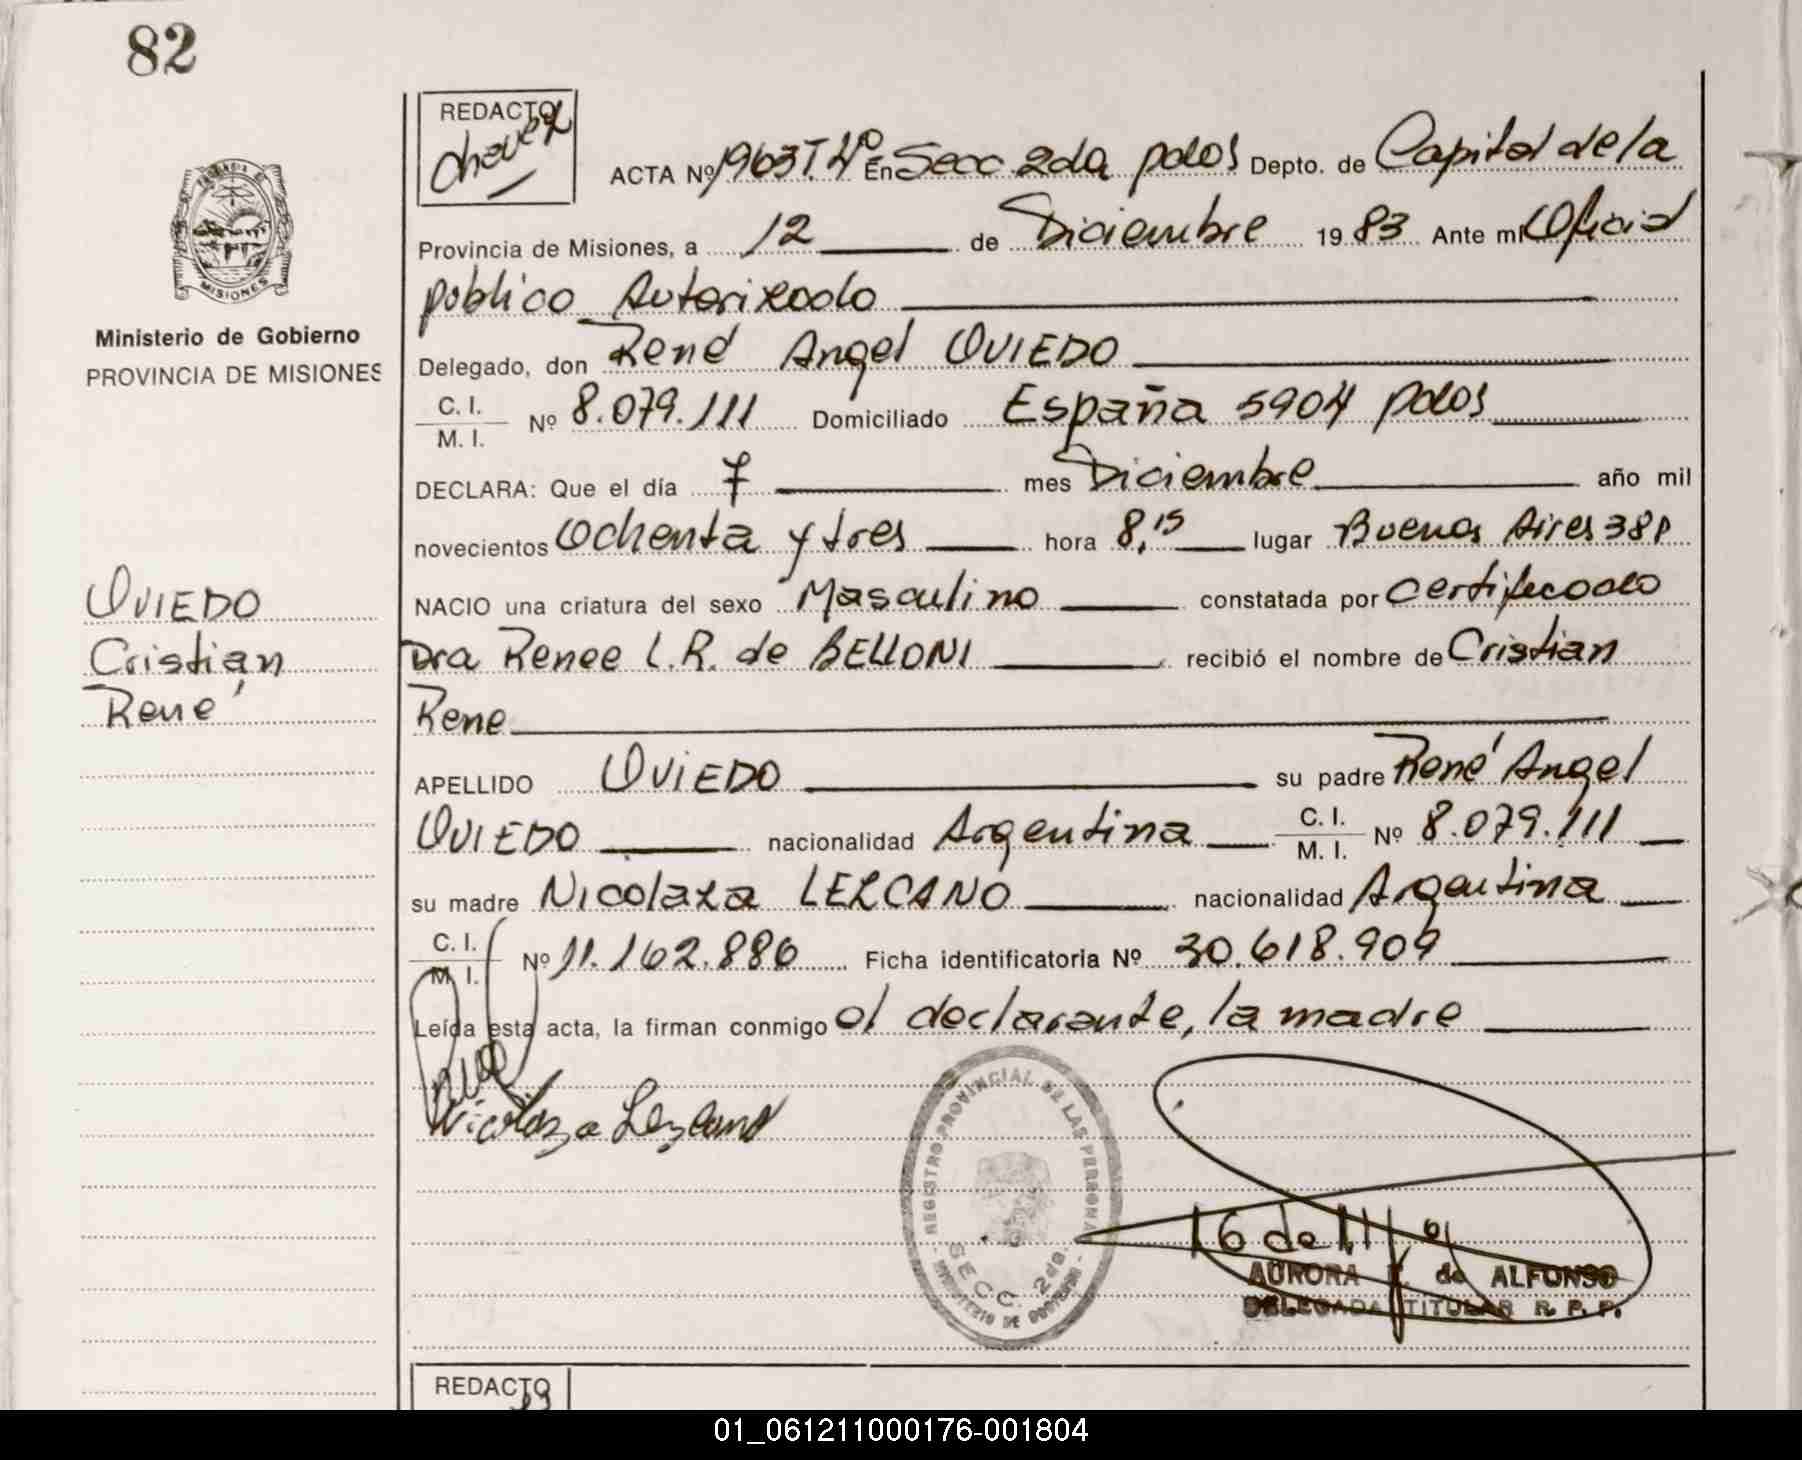 82
REDACTO
Chavez
ACTA Nº 1963 T.4º En Secc 2da pdas Depto. de Capital de la
Provincia de Misiones, a 12 de Diciembre 1983 Ante mi Oficial
público Autorizado
Delegado, don René Angel OVIEDO
C. I.
M. I. Nº 8.079.111 Domiciliado España 5904 pdas
DECLARA: Que el día 7 mes Diciembre año mil
novecientos Ochenta y tres hora 8,15 lugar Buenos Aires 38P
NACIO una criatura del sexo Masculino constatada por Certificado
Dra Renee L.R. de BELLONI recibió el nombre de Cristian
Rene
APELLIDO OVIEDO su padre René Angel
OVIEDO nacionalidad Argentina C. I.
M. I. Nº 8.079.111
su madre Nicolaza LEZCANO nacionalidad Argentina
C. I.
M. I. Nº 11.162.886 Ficha identificatoria Nº 30.618.909
Leída esta acta, la firman conmigo el declarante, la madre
Nicolaza Lezcano
REGISTRO PROVINCIAL DE LAS PERSONAS
SECC. 2da.
MINISTERIO DE GOBIERNO
16 de
AURORA de ALFONSO
DELEGADA TITULAR R. P. P.
PROVINCIA DE
MISIONES
Ministerio de Gobierno
PROVINCIA DE MISIONES
OVIEDO
Cristian
René
REDACTO
01_061211000176-001804